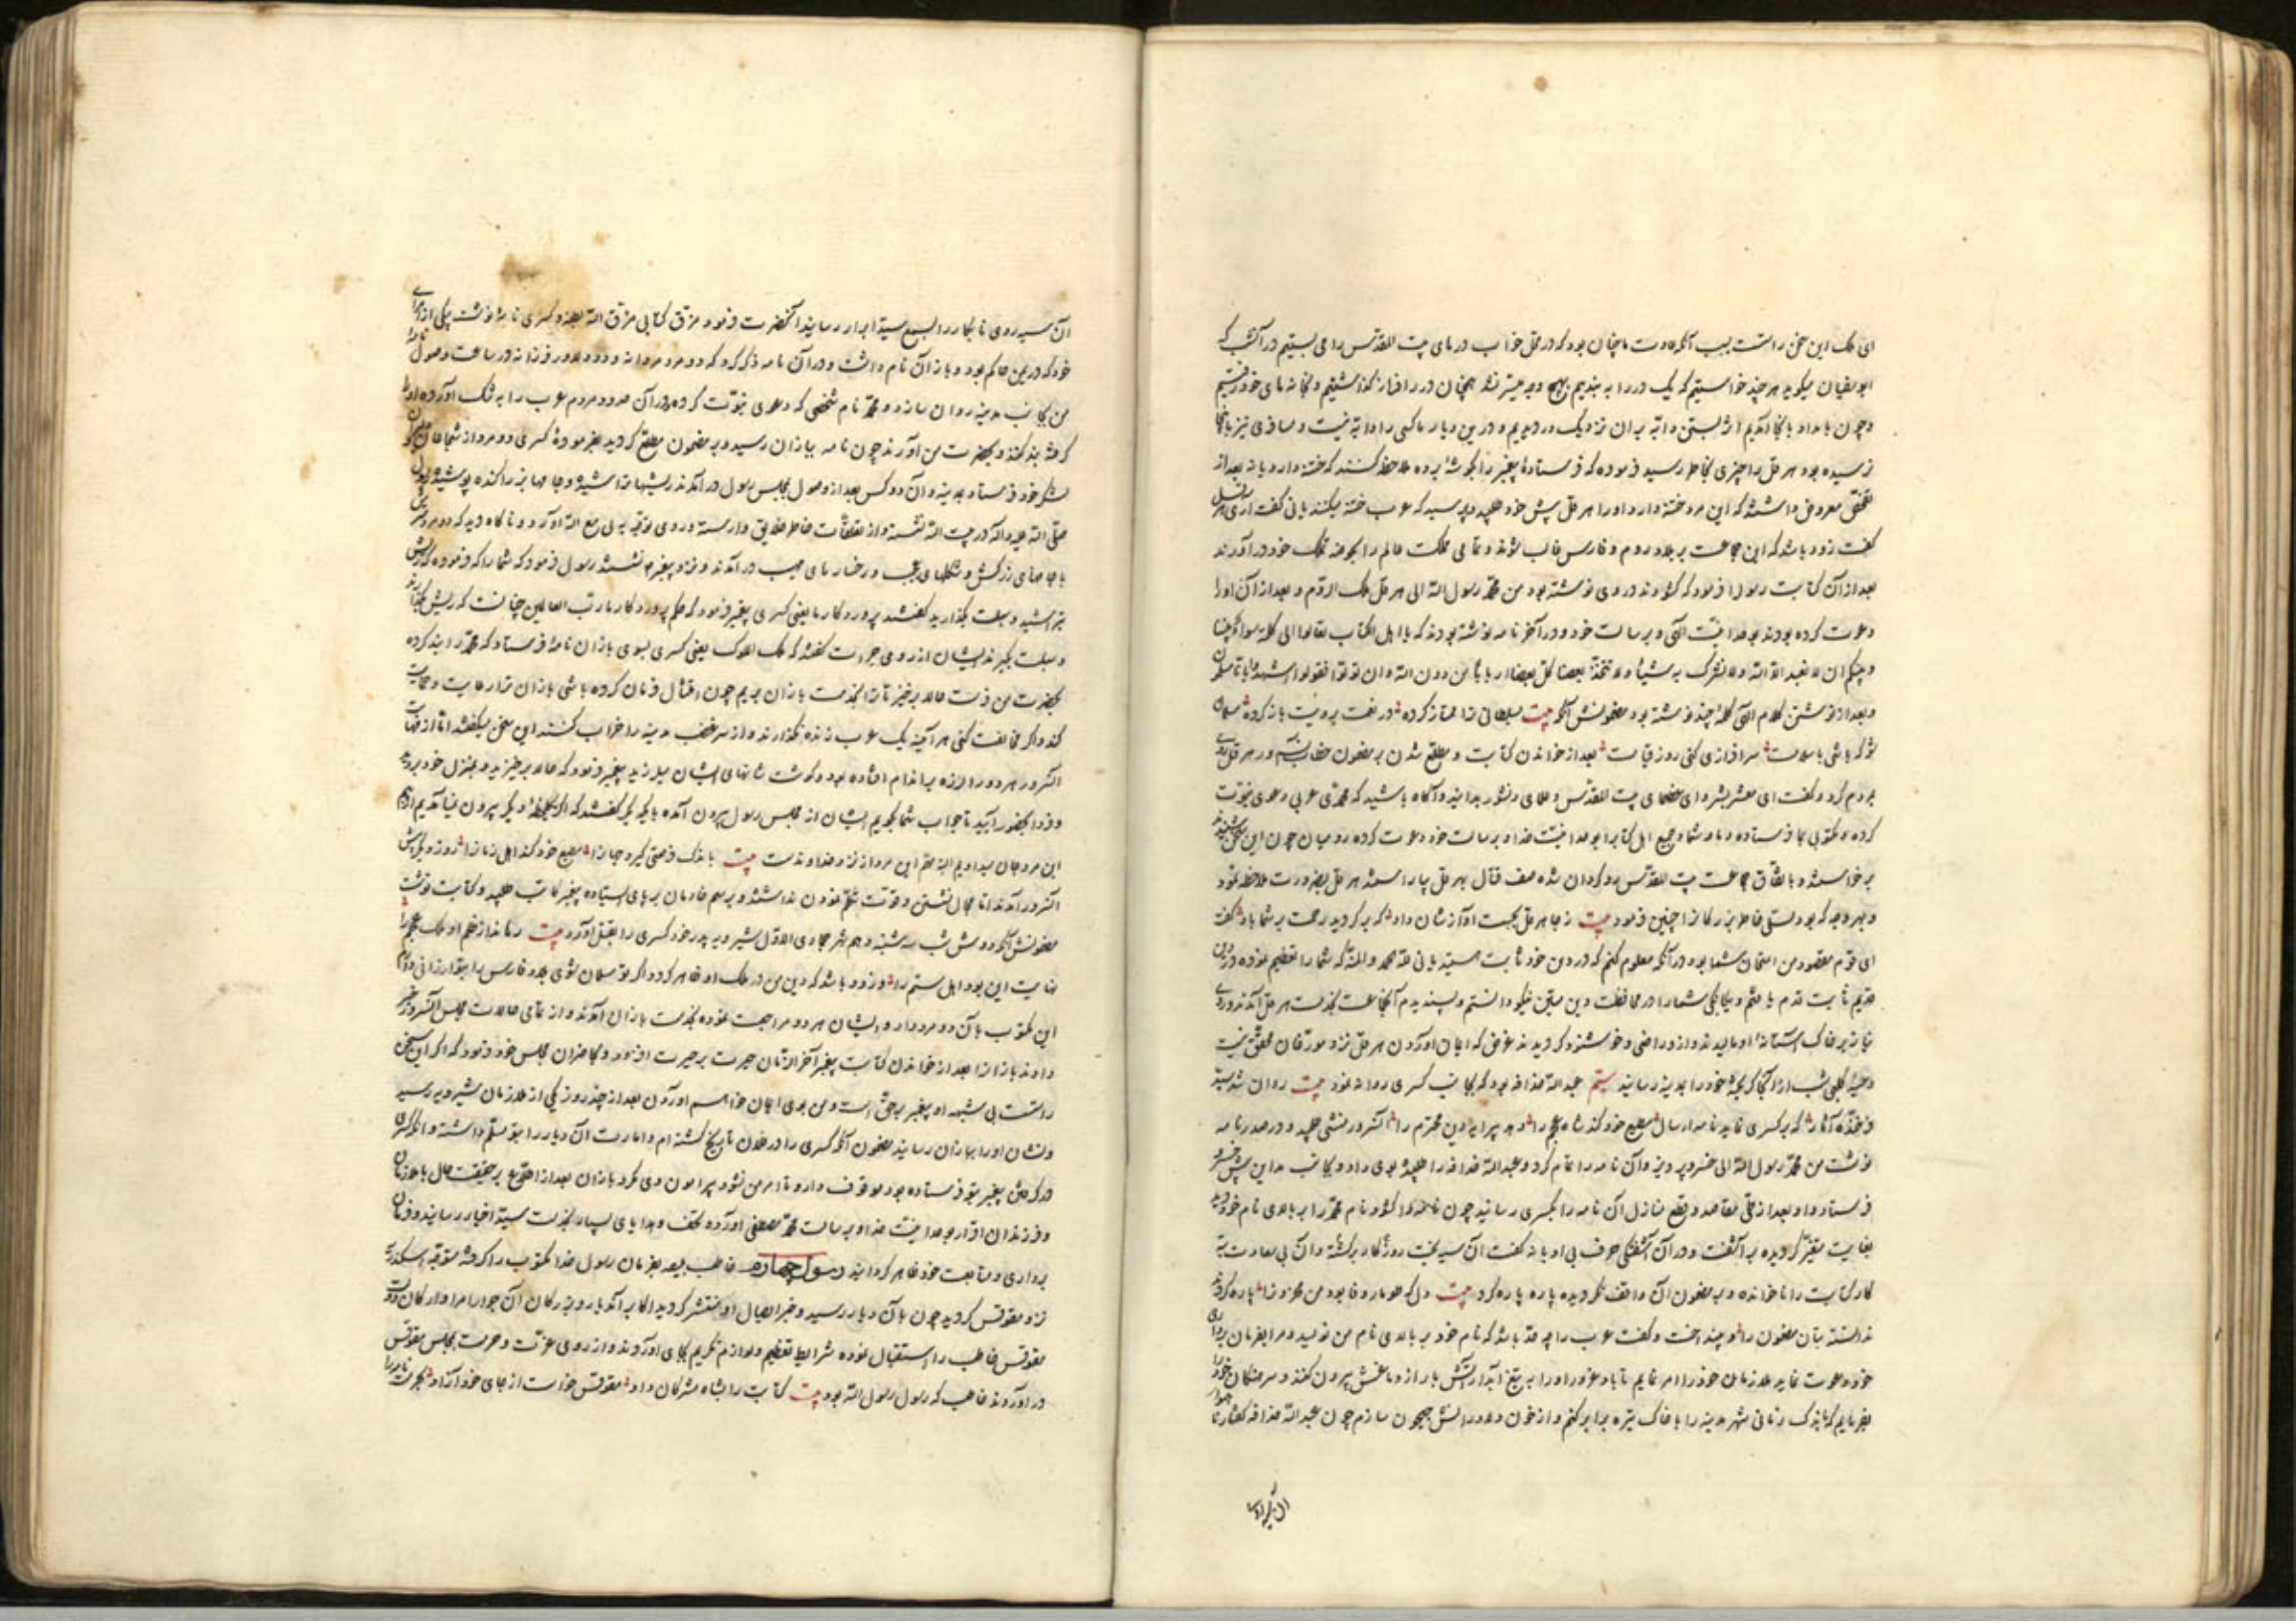 ای ملک این سخن راست بسبب آنکه عادت ما چنان بود که در محل خواب درهای بیت المقدس را می بستیم در آنشب که
ابوسفیان میکوید هر چند خواستیم که یک در را به بندیم بهیچ وجه میسر نشد همچنان در را فراز کذاشتیم و بخانه های خود رفتیم
و چون بامداد بانجا آمدیم اثر بستن دابه بران نزدیک در دیدیم و درین دیار ما کسی را دابه نیست و مسافری نیز بانجا
نرسیده بود هرقل را چیزی بخاطر رسید فرموده که فرستادۀ پیغمبر را بکوشۀ برده ملاحظه کنند که ختنه دارد یا نه بعد از
تحقیق معروض داشتند که این مرد ختنه دارد او را هرقل پیش خود طلبید و پرسید که عرب ختنه میکنند یا نی کفت آری هرقل
کفت زود باشد که این جماعت بر بلاد روم و فارس غالب شوند و تمامی مملکت عالم را بحوضه تملک خود در آورند
بعد از آن کتابت رسول را فرمود که کشودند در وی نوشته بود من محمد رسول الله الی هرقل ملک الروم و بعد از آن او را
دعوت کرده بودند بوحدانیت الهی و برسالت خود و در آخر نامه نوشته بودند که یا اهل الکتاب تعالوا الی کلمة سواء بیننا
و بینکم ان لا نعبد الا الله و لا نشرک به شیئا و لا یتخذ بعضنا بعضا اربابا من دون الله و ان تولوا فقولوا اشهدوا بانا مسلمون
و بعد از نوشتن کلام الهی کلمۀ چند نوشته بود مضمونش آنکه بیت سلطانی ترا ممتاز کرده در نعمت برویت باز کرده مسلمان
شو که باشی با سلامت سرافرازی کنی روز قیامت بعد از خواندن کتابت و مطلع شدن بر مضمون خطاب هرقل
بردم کرد و کفت ای معشر بشر و ای عظمای بیت المقدس و علمای دانشور بدانید و آکاه باشید که محمد عربی دعوی نبوت
کرده و مکتوبی بما فرستاده و ما و شما و جمیع اهل کتاب را بوحدانیت خدا و برسالت خود دعوت کرده رومیان چون این سخن شنیدند
برخواستند و باتفاق جماعت بیت المقدس رو کردان شده صف قتال بهرقل بیاراستند هرقل بضرورت ملاحظه نمود
و بهر وجه که بود تسلی خاطر بزرکان را چنین فرمود بیت ز جا هرقل بجست آوازشان داد که برکردید رحمت بر شما باد کفت
ای قوم مقصود من امتحان شما بود در آنکه معلوم کنم که در دین خود ثابت هستید یا نی لله الحمد و المنة که شما را تعظیم نموده در دین
قدیم ثابت قدم یافتم و یکایکی شما را در محافظت دین متین نیکو دانستم و پسندیدم آنجماعت بخدمت هرقل آمدند و روی
نیاز بر خاک آستانۀ او مالیدند و از و راضی و خوشنود کردیدند غرض که ایمان آوردن هرقل نزد مورخان محقق نیست
و دحیۀ کلبی شب از آنجا کریخته خود را بمدینه رسانید سیم عبد الله حذافه بود که بجانب کسری روانه نمود بیت روان شد سید
فرخنده آثار که بر کسری نماید نامه ارسال مطیع خود کند شاه عجم را دهد پیرایه دین محترم را آنسرور منشی طلبید و در صدر نامه
نوشت من محمد رسول الله الی خسرو پرویز و آن نامه را تمام کرد و عبد الله حذافه را طلبیده بوی داد و بجانب مداین پیش خسرو
فرستاد و او بعد از طی مقاصد و قطع منازل آن نامه را بکسری رسانید چون نامه را کشود نام محمد را بر بالای نام خود دید
بغایت متغیر کردیده برآشفت و در آن آشفتکی حرف بی ادبانه کفت آن سیه بخت روزکار برکشته و آن بی سعادت تبه
کار کتابت را ناخوانده و بر مضمون آن واقف نکردیده پاره پاره کرد بیت دلی که طومار وفا بود من محزون را پاره کردند
ندانسته بتان مضمون را و بینداخت و کفت عرب را چه حد باشد که نام خود بر بالای نام من نویسد و مرا بفرمان برداری
خود دعوت نماید ملازمان خود را امر نمایم تا باد غرور او را به تیغ آبدار آتش بار از دماغش بیرون کنند و سرهنکان خود را
بفرمایم که باندک زمانی شهر مدینه را با خاک تیره برابر کنم و از خون دلاورانش جیحون سازم چون عبد الله حذافه کفتار ناهموار
آن سیه روی
آن سیه روی نابکار را بسمع سید ابرار رسانید آنحضرت فرمود مزق کتابی مزق الله بطنه و کسری نامۀ نوشت بیکی از امرای
خود که در یمن حاکم بود و باذان نام داشت و در آن نامه ذکر کرد که دو مرد مردانه و دو دلاور فرزانه در ساعت وصول نامۀ
من بجانب مدینه روان سازد و محمد نام شخصی که دعوی نبوت کرده در آن حدود مردم عرب را به تنک آورده او را
کرفته بند کنند و بحضرت من آورند چون نامه بباذان رسید و بر مضمون مطلع کردید بفرمودۀ کسری دو مرد از شجاعان
لشکر خود فرستاد بمدینه و آن دو کس بعد از وصول بمجلس رسول در آمدند ریشها تراشیده و جامها بزر آکنده پوشیده رسول
صلی الله علیه و اله در بیت الله نشسته و از تعلقات خاطر خلایق وارسته و روی توجه به لی مع الله آورده ناکاه دید که دو مرد
با جامهای زرکش و شکلهای عجیب و رخسارهای مهیب در آمدند و نزد پیغمبر نشستند رسول فرمود که شما را که فرموده که ریش
بتراشید و سبلت بکذارید کفتند پروردکار ما یعنی کسری پیغمبر فرمود که حکم پروردکار ما رب العالمین چنانست که ریش بکذارند
و سبلت بکیرند ایشان از روی جرءت کفتند که ملک الملوک یعنی کسری بسوی باذان نامۀ فرستاد که محمد را بند کرده
بحضرت من فرست حالا برخیز تا ترا بخدمت باذان بریم چون امتثال فرمان کرده باشی باذان ترا رعایت و حمایت
کند و اکر مخالفت کنی هر آینه یک عرب زنده نکذارند و از سر غضب مدینه را خراب کنند این سخن میکفتند اما از مهابت
آنسرور هر دو را لرزه بر اندام افتاده بود و کوشت شانهای ایشان میلرزید پیغمبر فرمود که حالا برخیزید و بمنزل خود بروید
و فردا بحضور آیید تا جواب شما بکویم ایشان از مجلس رسول بیرون آمده با یکدیکر کفتند که اکر یکلحظۀ دیکر بیرون نمیآمدیم از بیم
این مرد جان میدادیم البته مقرر این مرد از نزد خداوندست بیت باندک فرصتی کیرد جهان را مطیع خود کند اهل زمان را روز دیکر پیش
آنسرور آمدند اما مجال نشستن و قوت تکلم نمودن نداشتند و برسم خادمان بر پای ایستاده پیغمبر کاتب طلبید و کتابت نوشت
مضمونش آنکه دوش شب سه شنبه دهم شهر جمادی الاول شیرویه پدر خود کسری را بقتل آورد بیت رهاند از ظلم او ملک عجم را
نهایت این بود اهل ستم را و زود باشد که دین من در ملک او ظاهر کردد اکر تو مسلمان شوی بلاد فارس را بتو ارزانی دارم
این مکتوب بآن دو مرد داد و ایشان هر دو مراجعت نموده بخدمت باذان آمدند و از تمامی حالات مجلس آنسرور خبر
دادند باذان را بعد از خواندن کتابت پیغمبر آخر الزمان حیرت بر حیرت افزود و بحاضران مجلس خود فرمود که اکر این سخن
راست بی شبهه او پیغمبر برحق است و من بوی ایمان خواهم آوردن بعد از چند روز یکی از ملازمان شیرویه رسید
و نشان او را بباذان رسانید مضمون آنکه کسری را در فلان تاریخ کشته ام و امارت آن دیار را بتو مسلم داشته و آنکه کسری
در کرفتن پیغمبر بتو فرستاده بود موقوف دار و تا امر من نشود پیرامون وی مکرد باذان بعد از اطلاع بر حقیقت حال با ملازمان
و فرزندان اقرار بوحدانیت خدا و برسالت محمد مصطفی آورده تحف و هدایای بسیار بخدمت سید اخیار رسانید و فرمان
برداری و متابعت خود ظاهر کردانید رسول چهارم حاطب بیعه بفرمان رسول خدا مکتوب را کرفته متوجه اسکندریه
نزد مقوقس کردید چون بآن دیار رسید و خبر ایصال او منتشر کردید اکابر آندیار و بزرکان آن جوار امرا و ارکان دولت
مقوقس حاطب را استقبال نموده شرایط تعظیم و لوازم تکریم بجای آوردند و از روی عزت و حرمت بمجلس مقوقس
در آوردند حاطب که رسول رسول الله بود بیت کتابت را بشاه مشرکان داد مقوقس خواست از جای خود آزاد بحرمت نامه را